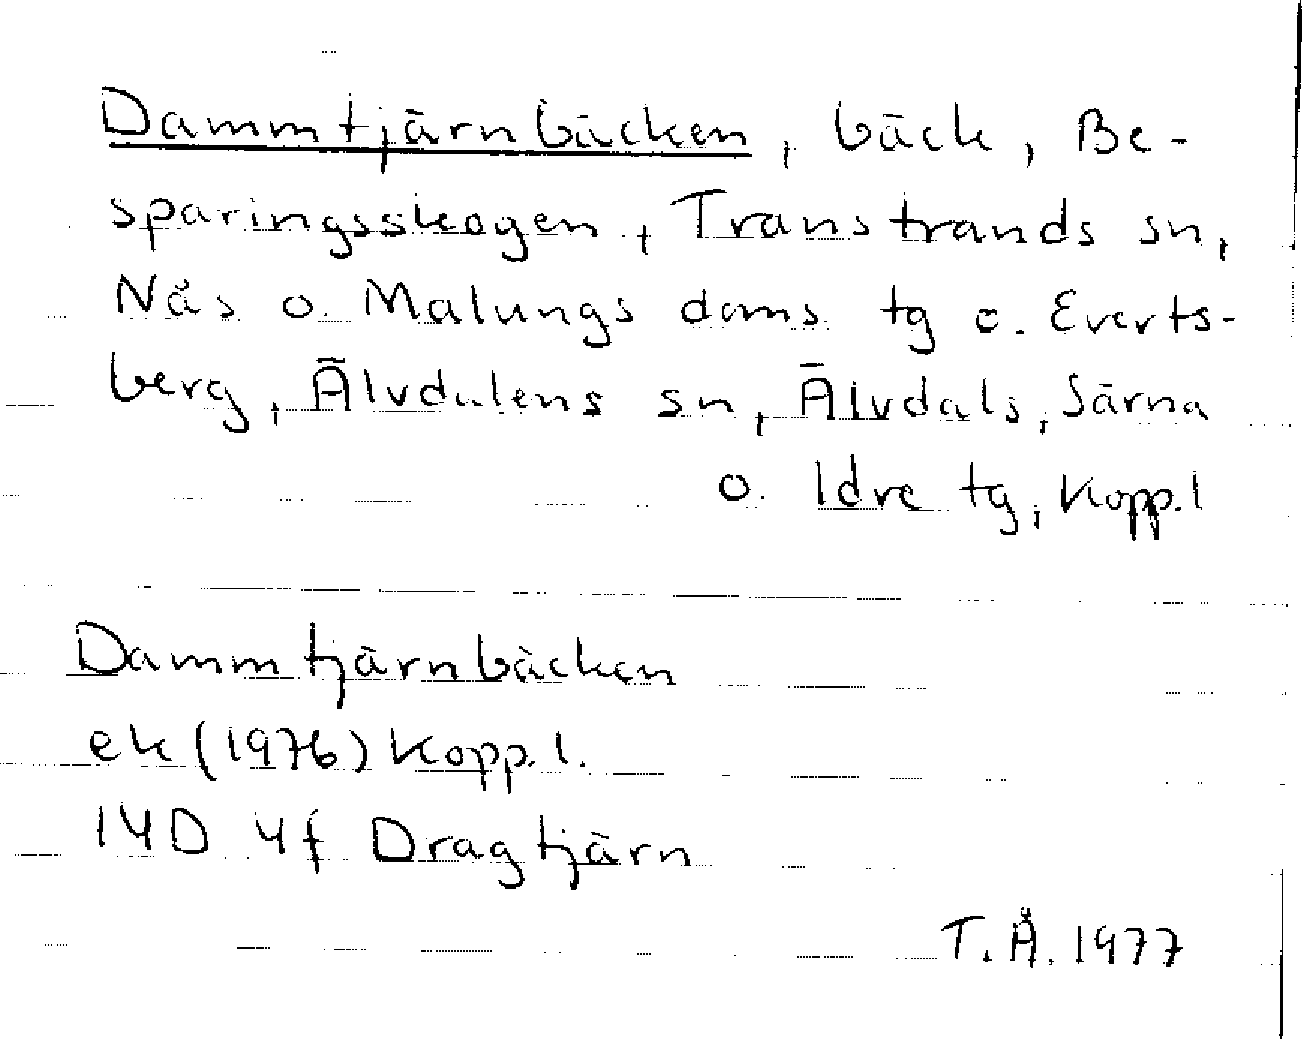 Dammtjärnbäcken, bäck, Be-
sparingsskogen, Transtrands sn,
Näs o. Malungs doms tg o. Everts-
berg, Älvdalens sn, Älvdals, Särna
o. Idre tg, Kopp.l
Dammtjärnbäcken
ek (1976) Kopp. l.
14D 4f Dragtjärn
T.Å. 1977